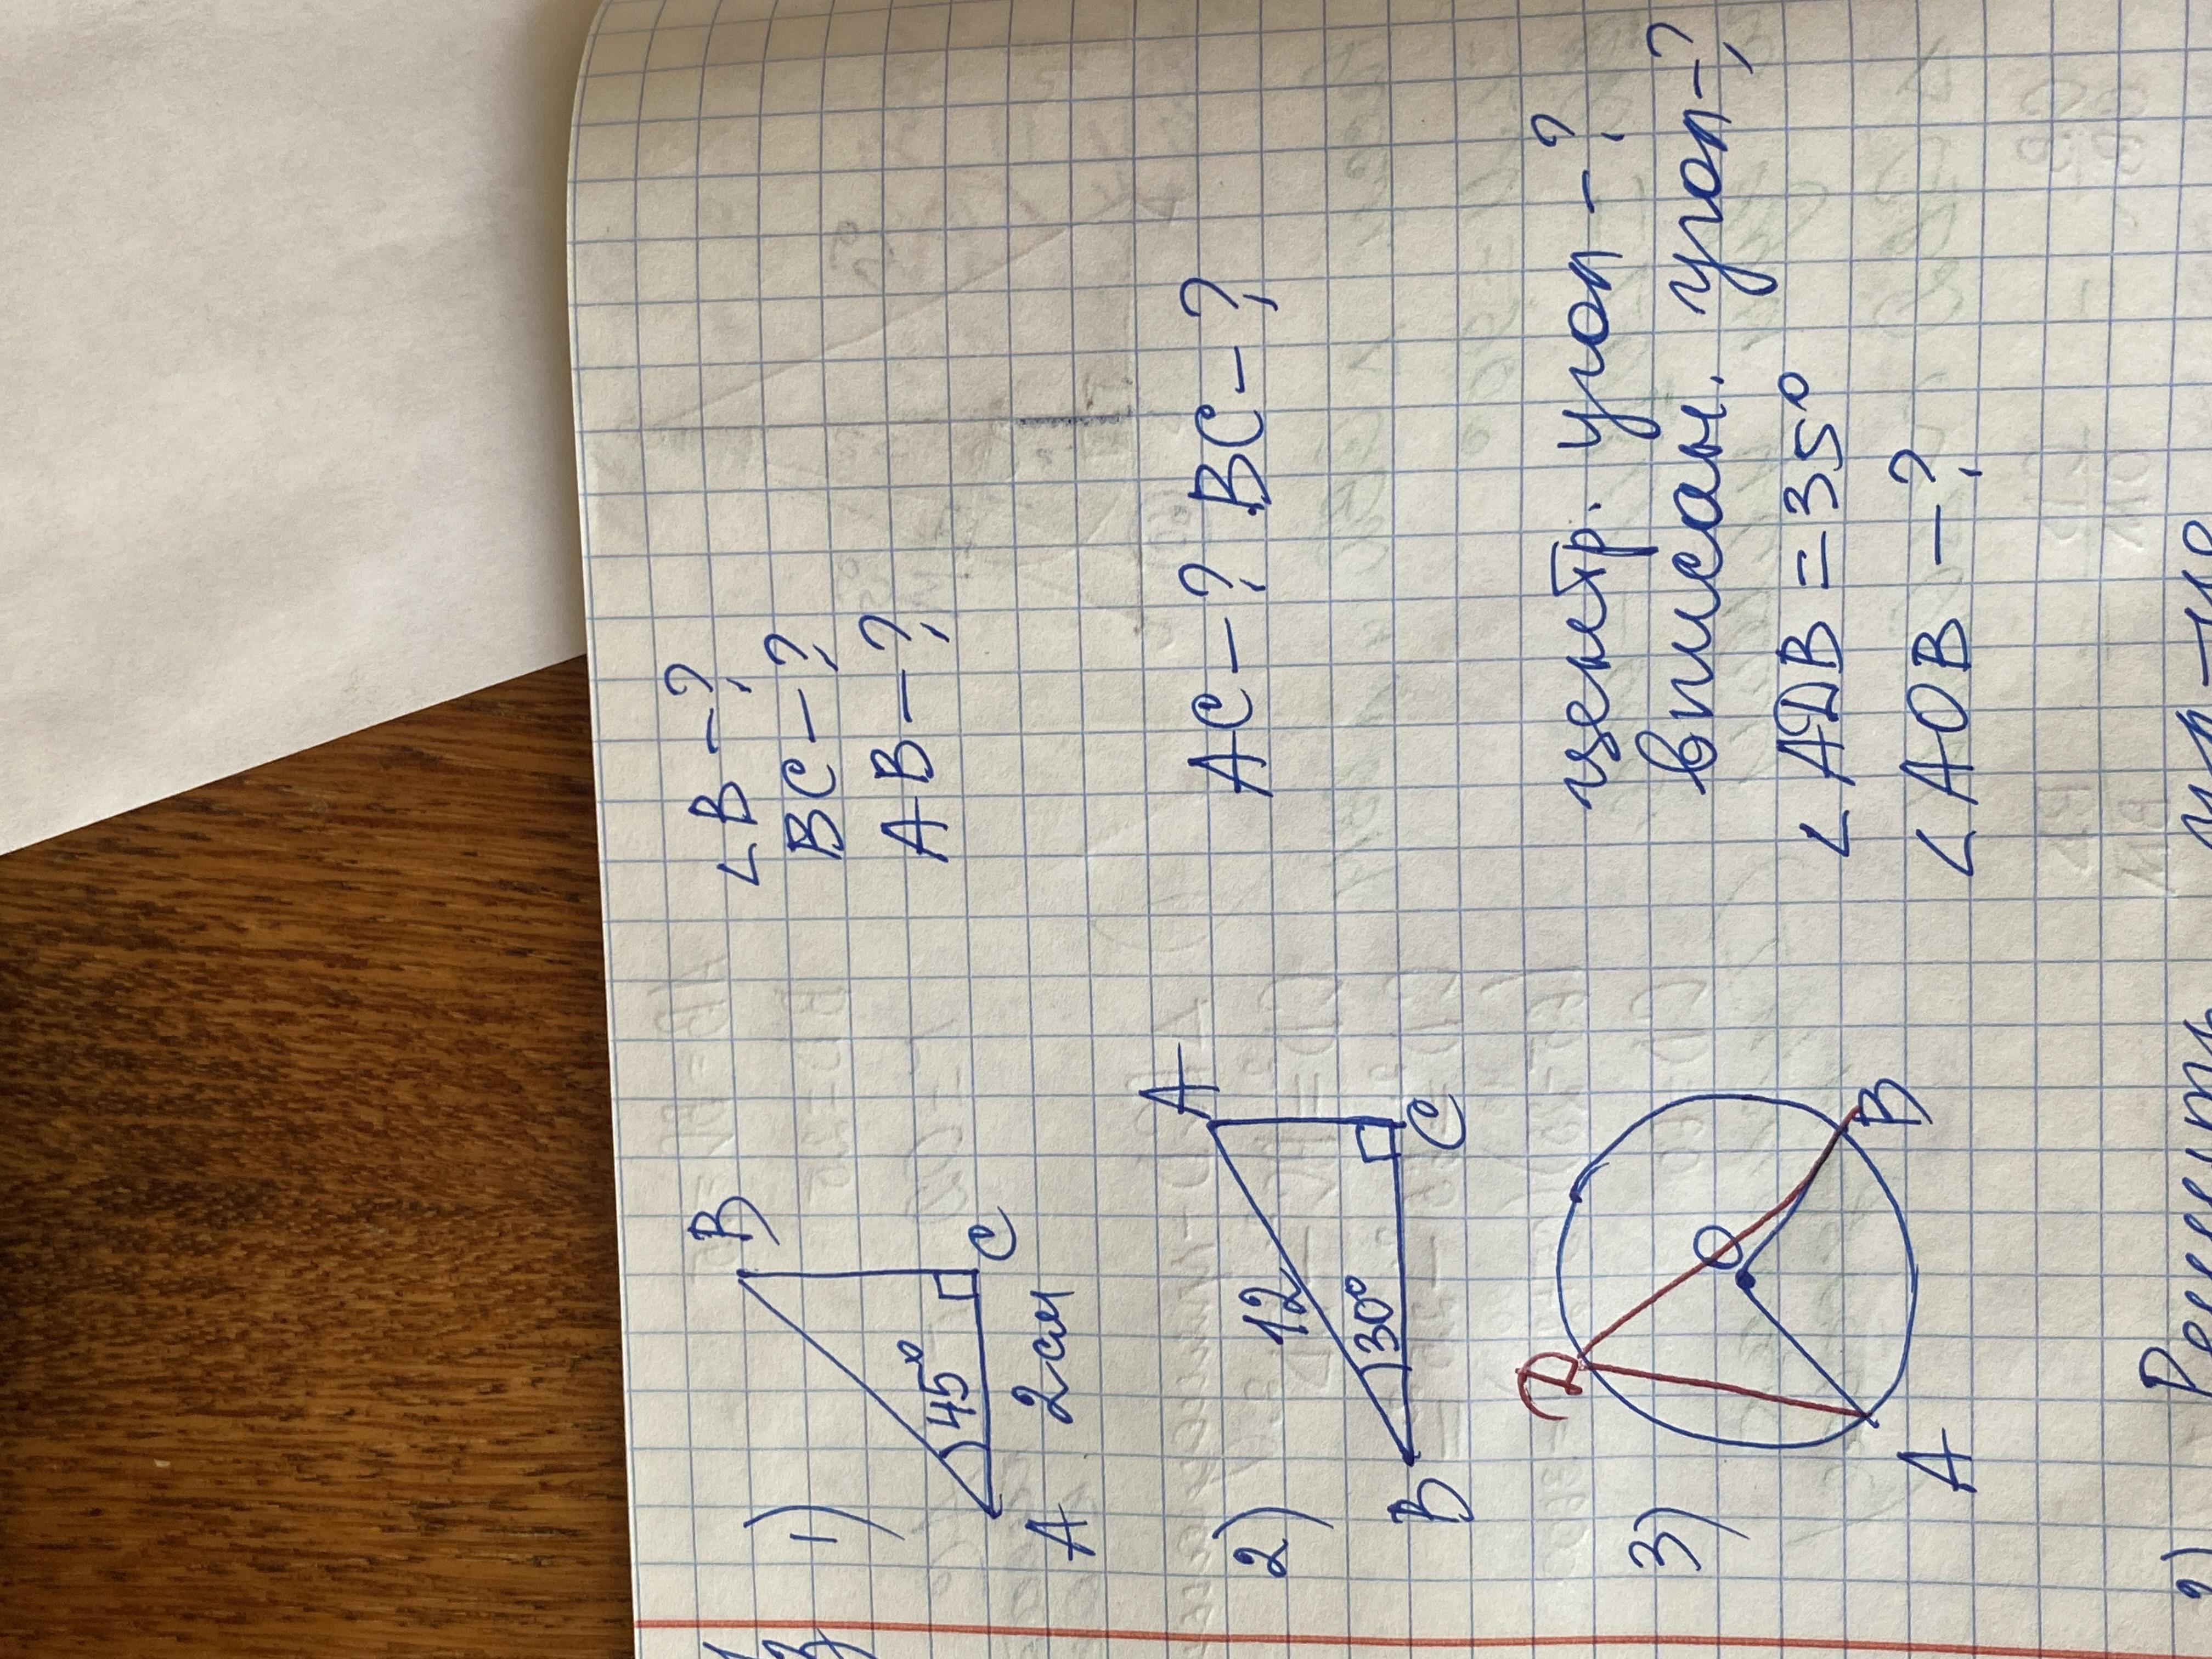 1)
B
45°
A 2см C
∠B-?
BC-?
AB-?
2)
A
12
30°
B C
AC-? BC-?
3)
D
O
A B
центр. угол-?
вписан. угол-?
∠ADB=35°
∠AOB-?
Решить